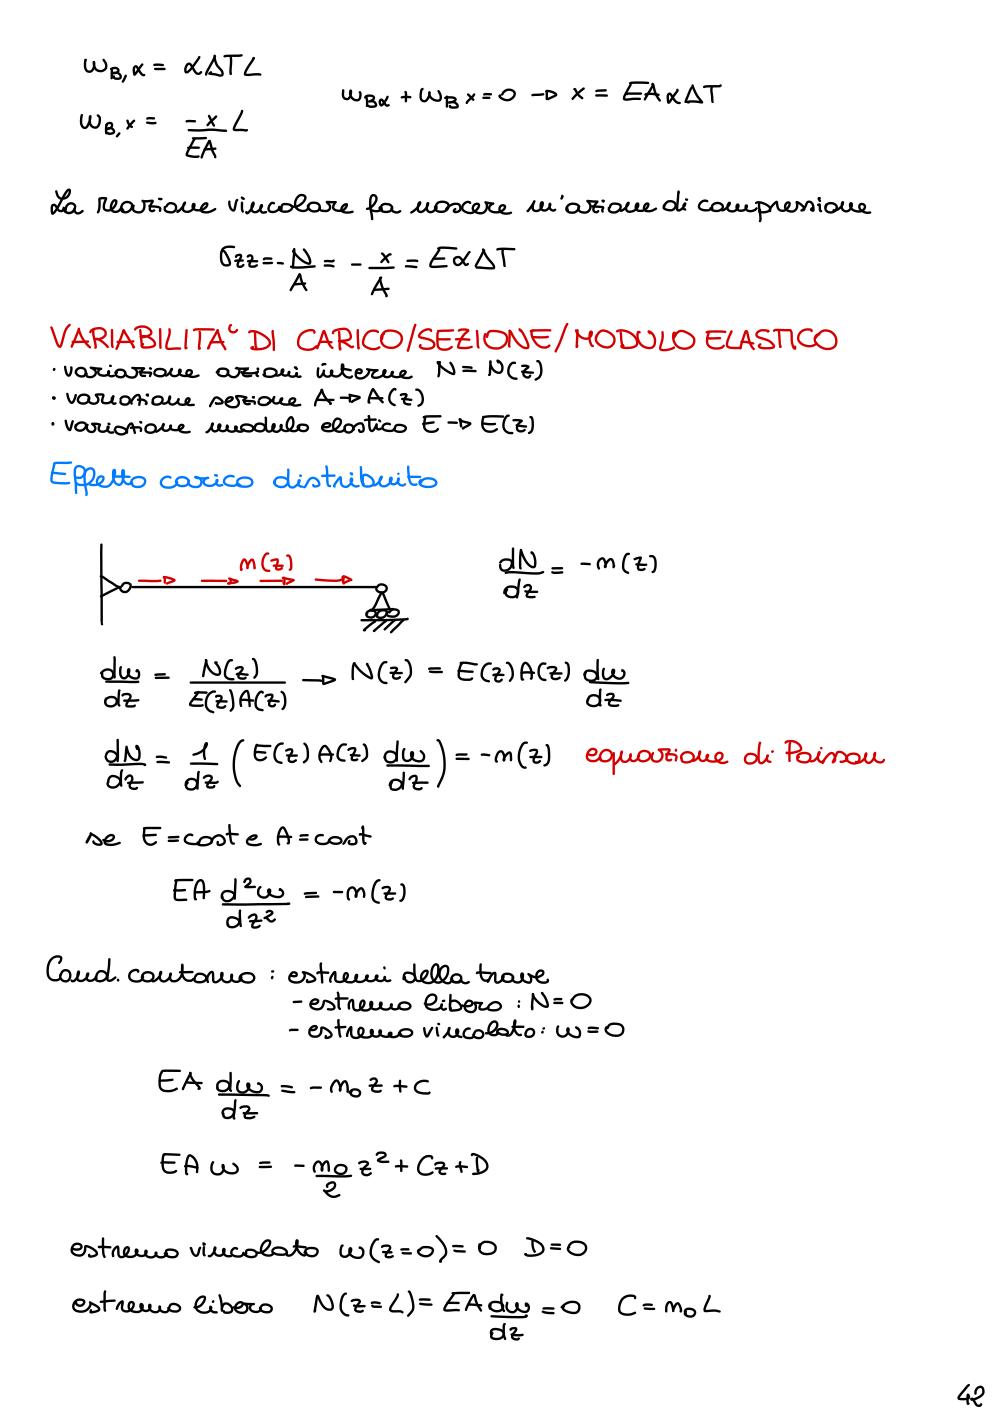 w_B,α = αΔTL
w_B,x = -x/EA L
w_Bα + w_Bx = 0 → x = EAαΔT
La reazione vincolare fa nascere un'azione di compressione
σzz = - N/A = - x/A = EαΔT
VARIABILITA' DI CARICO/SEZIONE/MODULO ELASTICO
· variazione azioni interne N = N(z)
· variazione sezione A → A(z)
· variazione modulo elastico E → E(z)
Effetto carico distribuito
m(z)
dN/dz = -m(z)
dw/dz = N(z)/E(z)A(z) → N(z) = E(z)A(z) dw/dz
dN/dz = 1/dz ( E(z) A(z) dw/dz ) = -m(z) equazione di Poisson
se E = cost e A = cost
EA d²w/dz² = -m(z)
Cond. contorno : estremi della trave
- estremo libero : N = 0
- estremo vincolato : w = 0
EA dw/dz = - m₀ z + C
EA w = - m₀/2 z² + Cz + D
estremo vincolato w(z=0) = 0 D = 0
estremo libero N(z=L) = EA dw/dz = 0 C = m₀ L
42